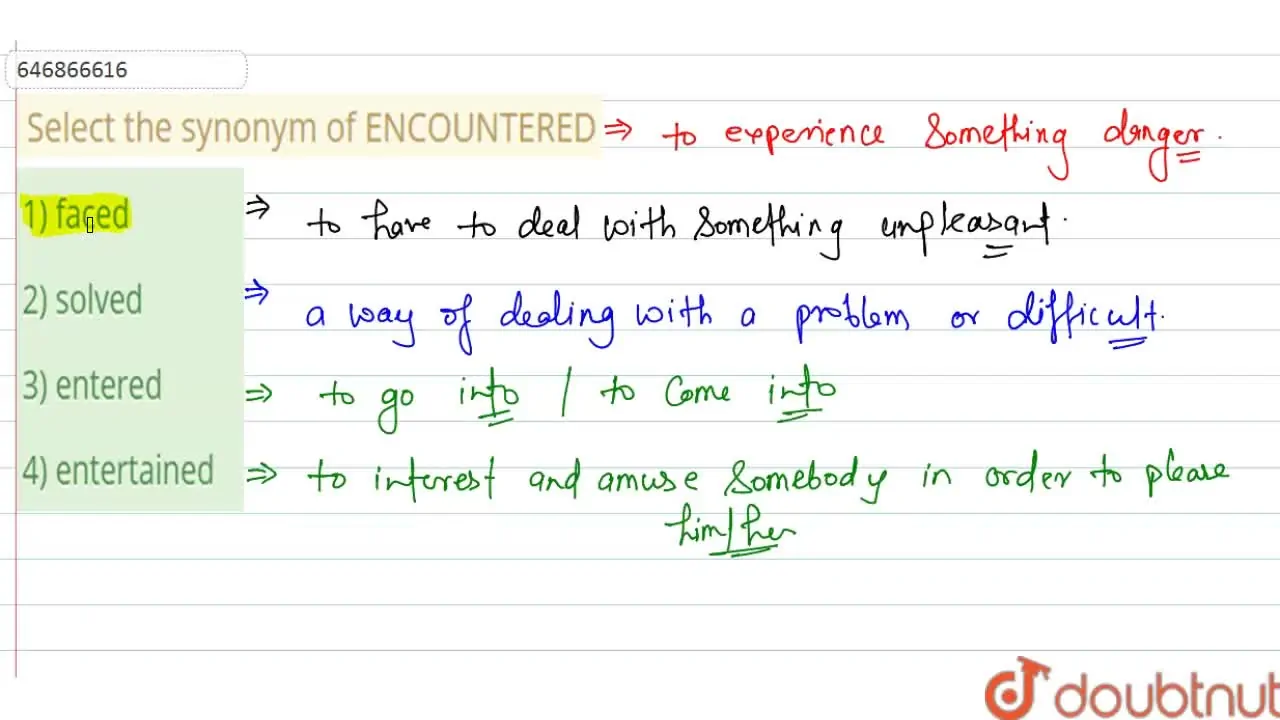 646866616
Select the synonym of ENCOUNTERED ⇒ to experience Something danger.
1) faced ⇒ to have to deal with Something unpleasant.
2) solved ⇒ a way of dealing with a problem or difficult.
3) entered ⇒ to go into / to Come into
4) entertained ⇒ to interest and amuse Somebody in order to please
him/her
doubtnut